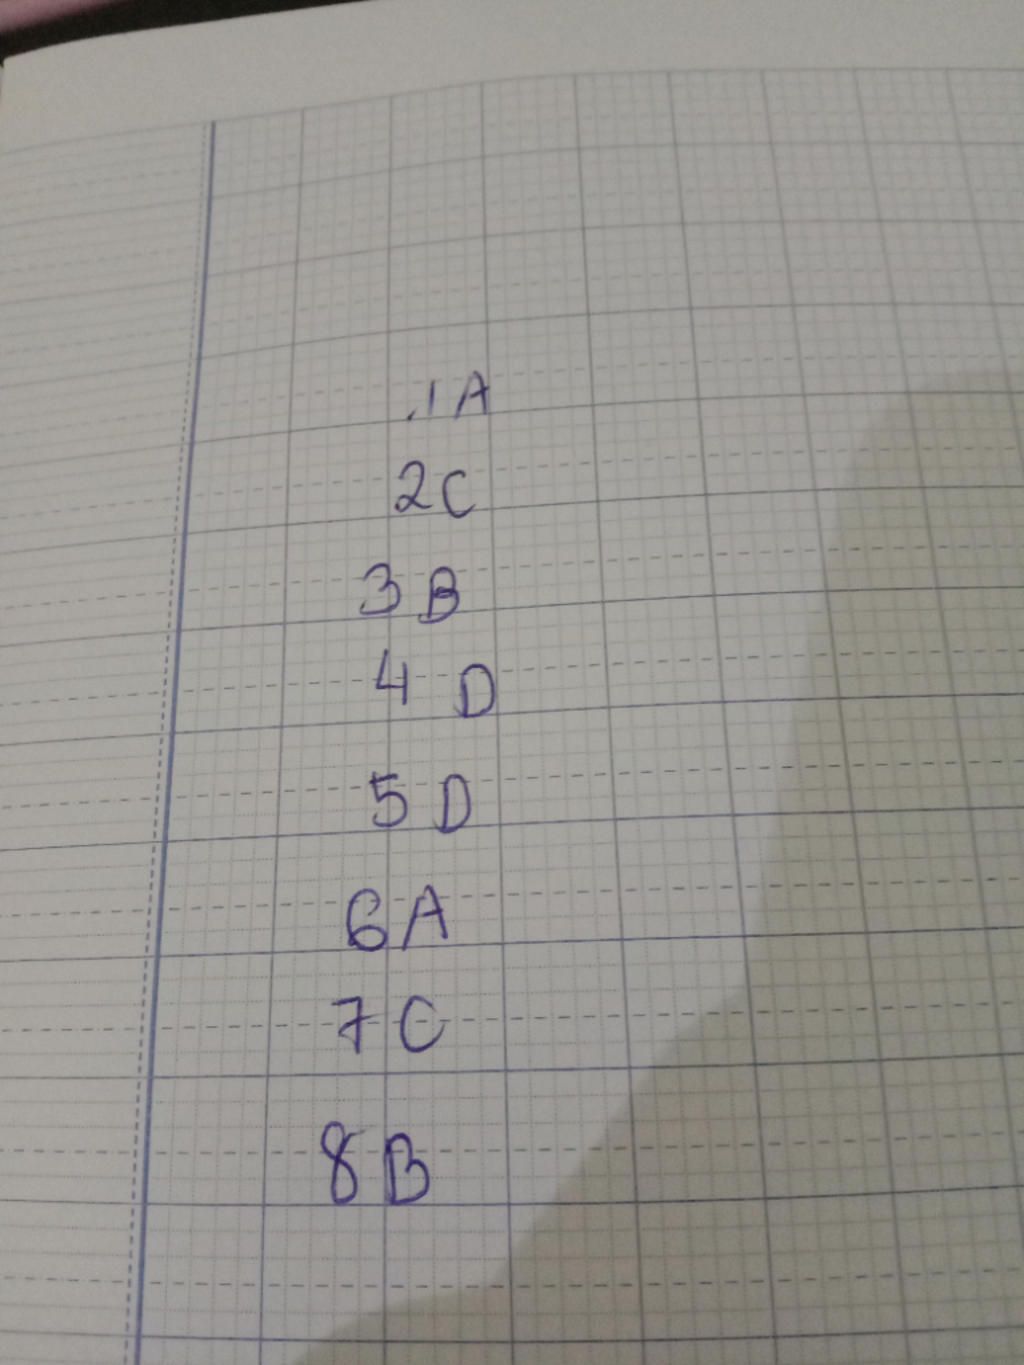 .1 A
2 C
3 B
4 D
5 D
6 A
7 C
8 B